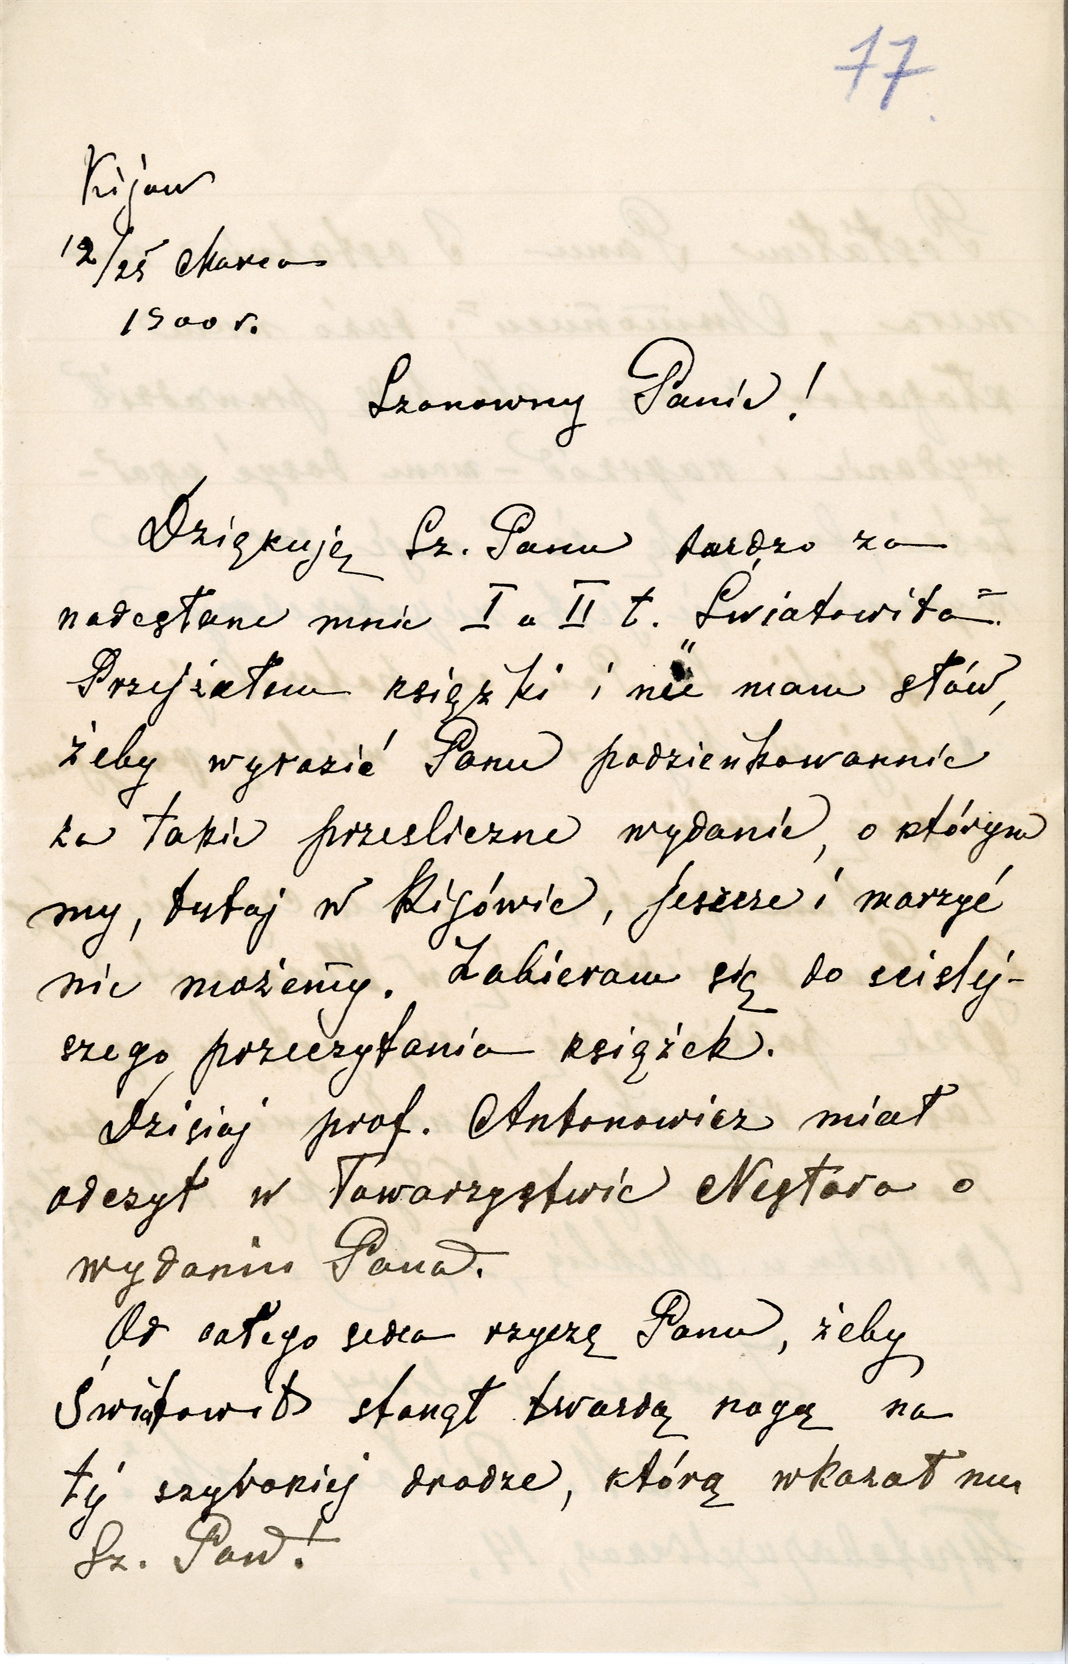 77.
Kijow
12/25 Marca
1900 r.
Szanowny Panie!
Dziękuję Sz. Panu bardzo za
nadesłane mnie I a II t. „Światowita“.
Przejżałem książki i nie mam słów,
żeby wyrazić Panu podzieńkowannie
za takie przesliczne wydanie, o którym
my, tutaj w Kijówie, jeszcze i marzyć
nie możemy. Zabieram się do scislej-
szego przeczytania książek.
Dzisiaj prof. Antonowicz miał
odczyt w Towarzystwie Nestora o
wydaniu Pana.
Od całego serca rzyczę Panu, żeby
Światowit stanął twardą nogą na
tyj szyrokiej drodze, którą wkazał mu
Sz. Pan!